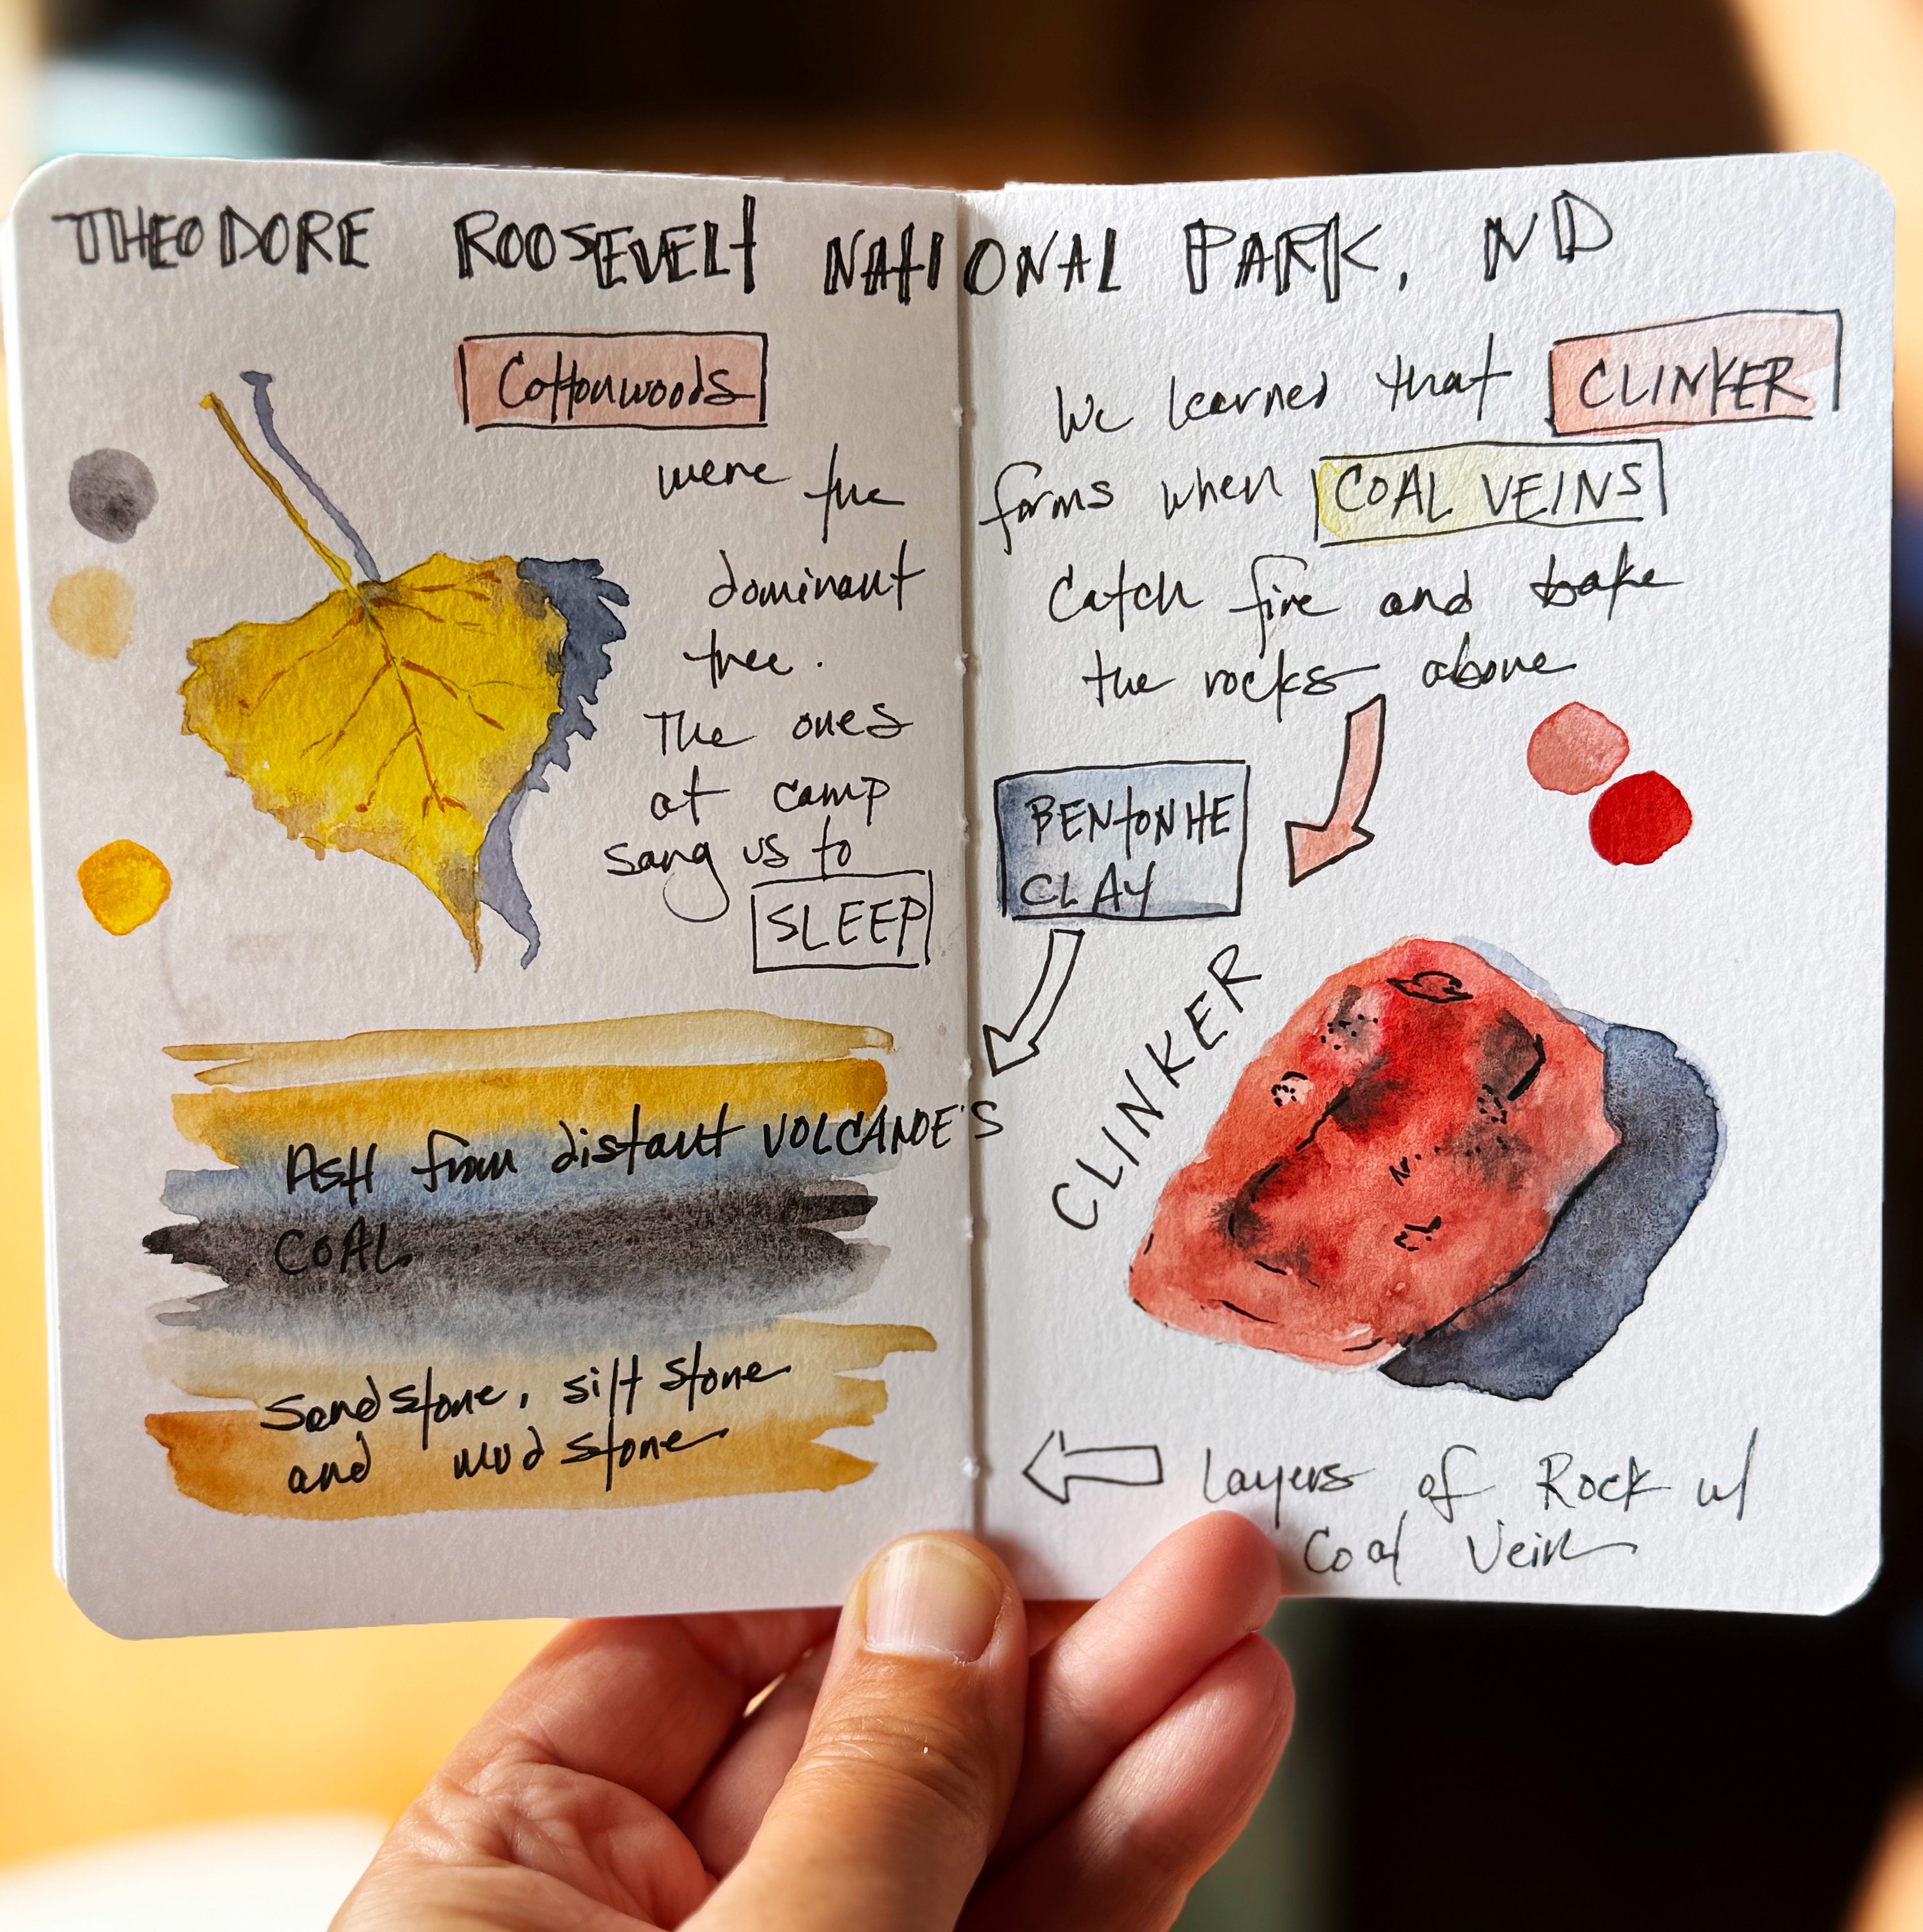 THEODORE ROOSEVELT NATIONAL PARK, ND
Cottonwoods
were the
dominant
tree.
The ones
at camp
sang us to
SLEEP
ASH from distant VOLCANOE'S
COAL
Sandstone, silt stone
and mud stone
We learned that CLINKER
forms when COAL VEINS
Catch fire and bake
the rocks above
BENTONITE
CLAY
CLINKER
Layers of Rock w/
Coal Vein